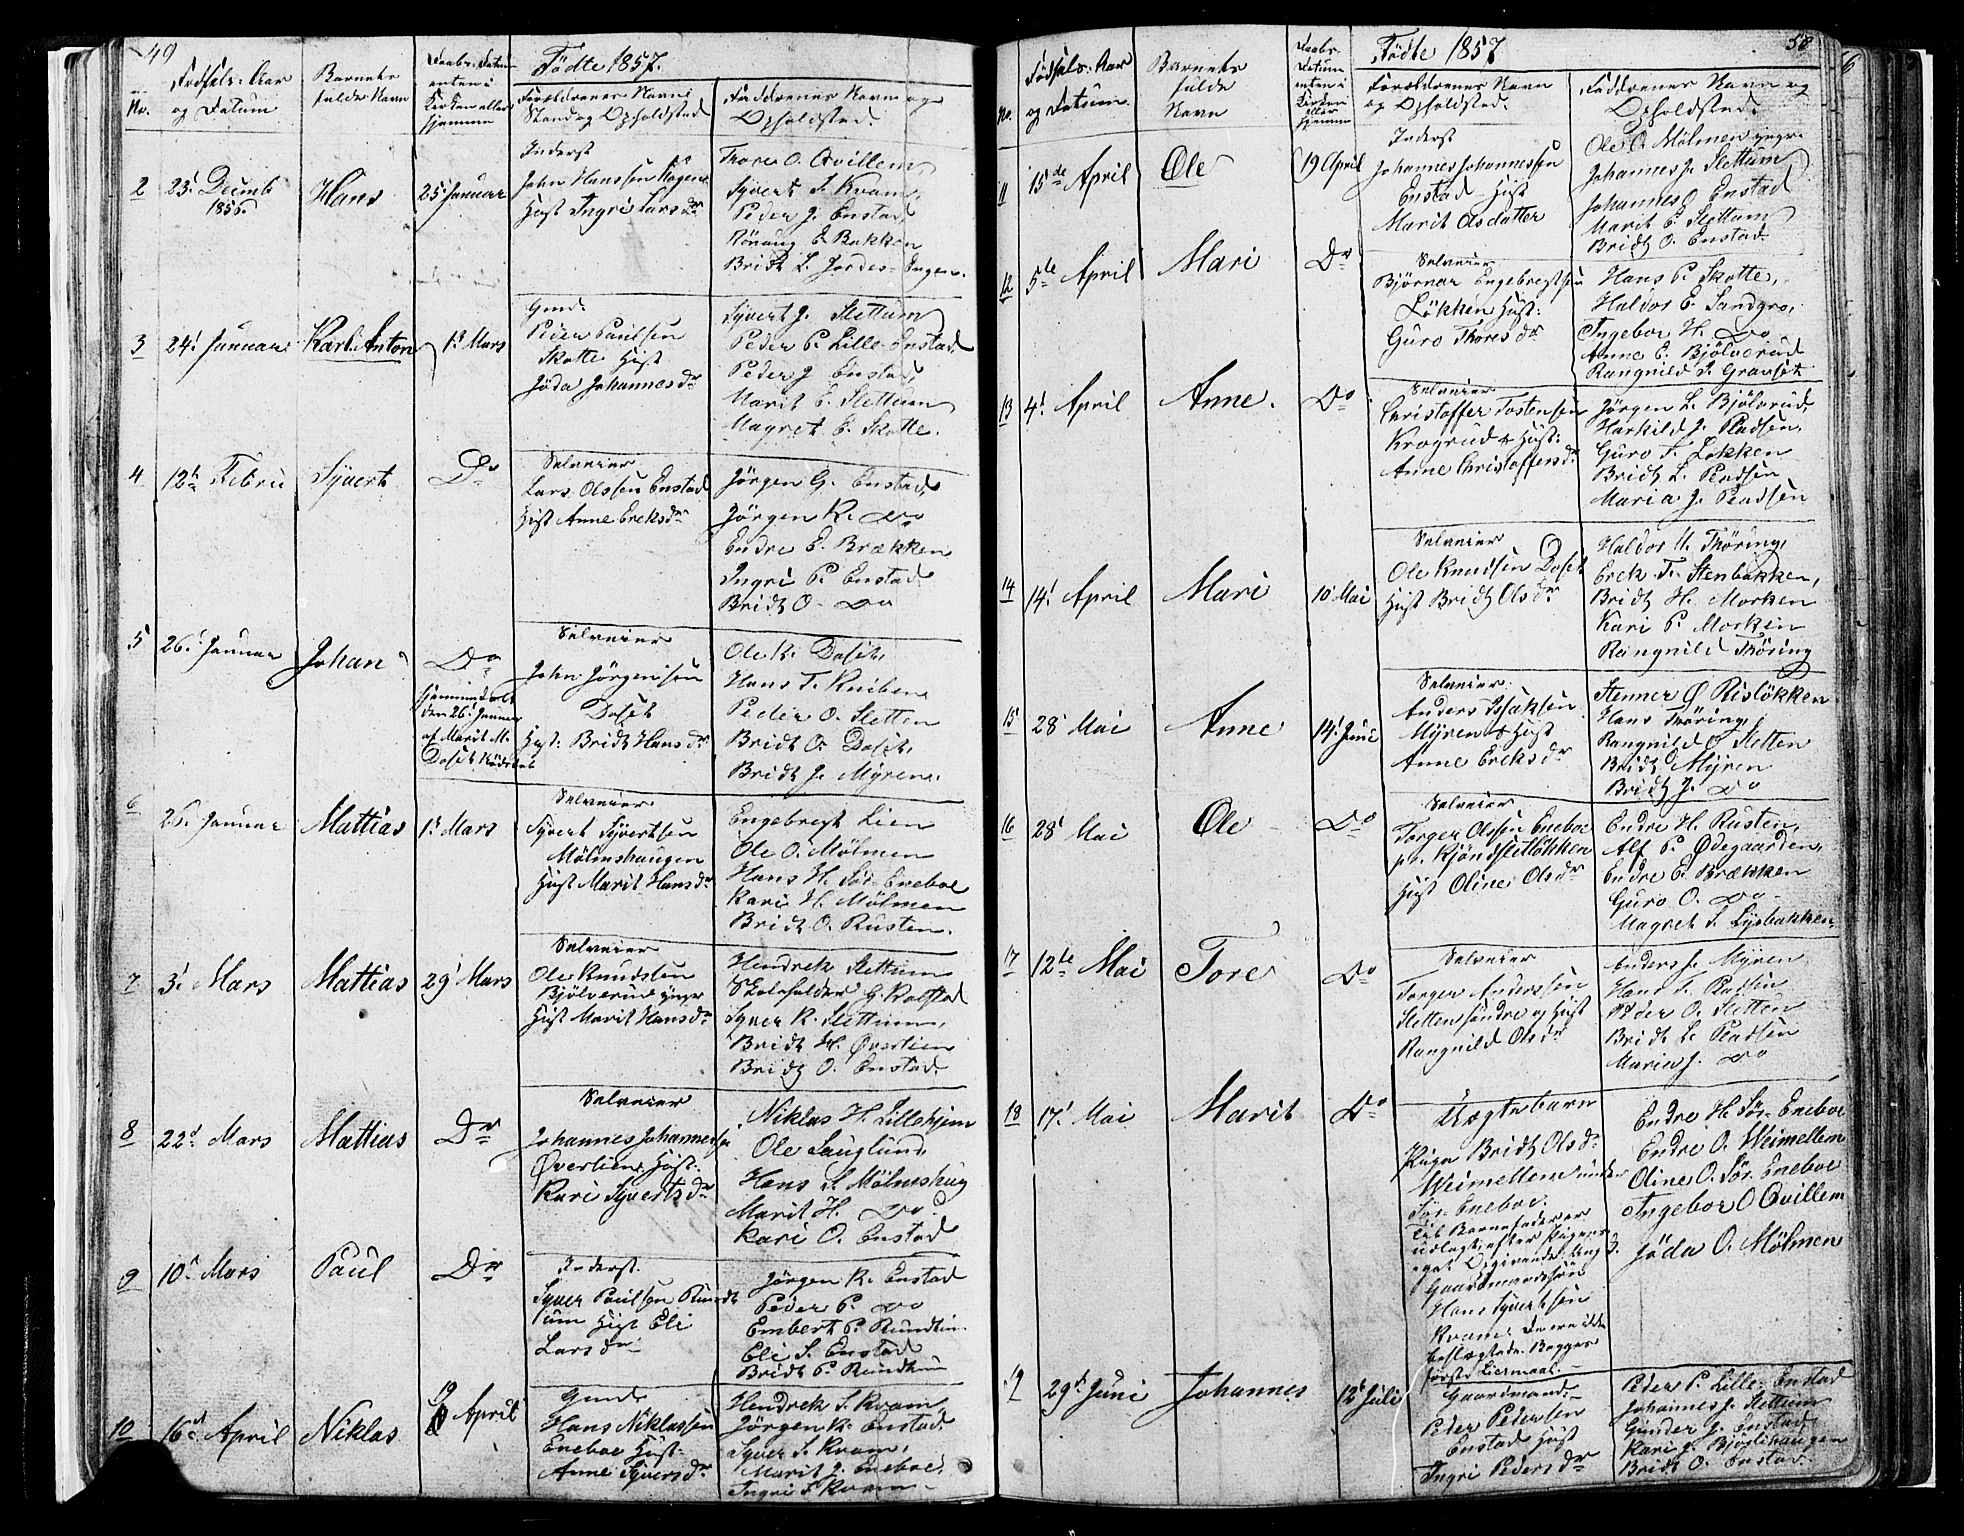 49
Födte 1857.
No.
Födsels-Aar
og Datum
Barnets
fulde Navn
Daabs-Datum
enten i
Kirken eller
hjemme
Forældrenes Navne
Stand og Opholdsted
Faddrenes Navn og
Opholdsted
2
23' Decemb
1856.
Hans
25' Januar
Inderst
John Hanssön
Hust Ingri Larsdr
Thore O. Qvillem,
Syvert S. Kvam,
Peder J. Enstad,
Rönnug E. Bakken
Bridt L. Jordes-Engen.
3
24' Januar
Karl Anton
1' Mars
Gmd.
Peder Paulsen
Skotte Hust
Jöda Johannesdr
Syvert J. Slettum
Peder P. Lille-Enstad,
Peder J Enstad,
Marit E. Slettum
Magret E. Skotte.
4
12' Febru
Syvert
Do
Selveier
Lars Olssen Enstad
Hust Anne Ereksdr
Jörgen G. Enstad,
Jörgen K. Do
Endre E. Brækken
Ingri P. Enstad
Bridt O. Do
5
26' Januar
Johan
Do
hjemmedöbt
den 26' Januar
af Marit M.
Doset
Selveier
John Jörgensen
Doset
Hust. Bridt Hansdr
Ole K. Doset,
Hans T.
Peder O. Sletten
Bridt O. Doset,
Bridt J. Myren.
6
26' Januar
Mattias
1' Mars
Selveier
Syvert Syvertsen
Mölmshaugen
Hust Marit Hansdr
Engebregt Lien
Ole O. Mölmen
Hans H. Sör-Eneboe
Kari H. Mölmen
Bridt O. Rusten.
7
3' Mars
Mattias
29' Mars
Selveier
Ole Knudsen
Bjölverud yngre
Hust Marit Hansdr
Hendrek Slettum
Skoleholder G. Kolstad
Syver K. Slettum,
Bridt H. Øverlien
Bridt O. Enstad.
8
22' Mars
Mattias
Do
Selveier
Johannes Johannessen
Øverlien, Hust.
Kari Syvertsdr
Niklas H. Lillehjem
Ole Sauglund,
Hans S. Mölmshug
Marit H. Do
Kari O. Enstad
9
10' Mars
Paul
Do
Inderst.
Syver Paulsen Rundt
um Hust Eli
Larsdr
Jörgen K. Enstad
Peder P. Do
Embert P. Rundtum
Eli S. Enstad
Bridt P. Rundtum
10
16' April
Niklas
19 April
Gmd.
Hans Niklassen
Eneboe Hust.
Anne Syversdr
Hendrek S. Kvam,
Jörgen K. Enstad.
Syver S. Kvam,
Marit J. Eneboe,
Ingri S. Kvam
50
Födte 1857
No.
Födsels-Aar
og Datum.
Barnets
fulde
Navn
Daabs-
Datum
enten i
Kirken
eller
hjemme
Forældrenes Navn
og Opholdsted.
Faddrenes Navn og
Opholdsted.
11
15de April
Ole
19 April
Inderst
Johannes Johannessen
Enstad Hust
Marit Olsdatter
Ole O. Mölmen yngre
Johannes J. Slettum
Johannes J Enstad
Marit E. Slettum
Bridt O. Enstad
12
5te April
Mari
Do
Selveier
Björner Engebregtsen
Lökken Hust:
Guro Thoresdr
Hans P. Skotte,
Haldor E. Sandgro,
Ingebor H. Do
Anne E. Bjölverud
Rangnild S. Gravset
13
4' April
Anne.
Do
Selveier
Christoffer Tostensen
Krogrud & Hust:
Anne Christoffersdr
Jörgen L. Bjölverud,
Harkild J. Pladsen,
Guro T. Lökken
Bridt L. Pladsen
Maria J. Pladsen
14
14' April
Mari
10 Mai
Selveier
Ole Knudsen Doset
Hust Bridt Olsdr
Haldor H. Thöring,
Erek T. Stenbakken,
Bridt H. Morken
Kari P. Morken
Rangnild Thöring
15
28' Mai
Anne
14' Juni
Selveier.
Anders Issaksen
Myren & Hust
Anne Ereksdr
Stenner Ø Risløkken
Hans Thöring,
Rangnild O Sletten
Bridt Myren
Bridt J. Do
16
28' Mai
Ole
Do
Selveier
Torger Olssen Eneboe
Hust Oline Olsdr
Endre H. Rusten,
Alf P. Ødegaarden,
Endre E. Brækken
Guro O. Do
Magret S. Lysbakken
17
12te Mai
Tore
Do
Selveier
Torger Anderssen
Sletten söndre og Hust
Rangnild Olsdr
Anders J. Myren
Hans T. Pladsen
Peder O. Sletten
Bridt L. Pladsen
Maria J. Do
18
17' Mai
Marit
Do
Uægtebarn
Pigen Bridt Olsdr
Weimellem under
Sör-Eneboe.
Til Barnefader er
udlagt, efter Pigens
eget Opgivende, Ungk.
Gaardmandssön
Hans Syvertsen
Kvam. De ere ikke
beslægtede. Begges
förste Leiermaal.
Endre H. Sör-Eneboe
Endre O. Weimellem
Oline O. Sör-Eneboe
Ingebor O Qvillem
Jöda O. Mölmen
19
29' Juni
Johannes
12' Juli
Gaardmand
Peder Pedersen
Enstad Hust
Ingri Pedersdr
Peder P. Lille-Enstad
Johannes J. Slettum
Gunder J. Enstad
Kari J. Bjöllhaugen
Bridt O. Enstad